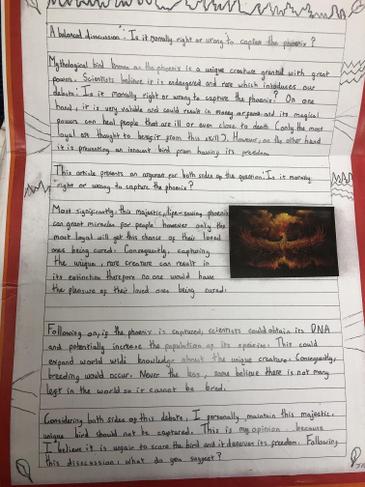 A balanced discussion: Is it morally right or wrong to capture the phoenix?
Mythological bird known as the phoenix is a unique creature granted with great
powers. Scientists believe it is endangered and rare which introduces our
debate: Is it morally right or wrong to capture the phoenix? On one
hand, it is very valuable and could result in money or fame and its magical
powers can heal people that are ill or even close to death (only the most
loyal are thought to benefit from this skill). However, on the other hand
it is preventing an innocent bird from having its freedom.
This article presents an argument for both sides of the question: Is it morally
right or wrong to capture the phoenix?
Most significantly, this majestic, life-saving phoenix
can grant miracles for people however only the
most loyal will get this chance of their loved
ones being cured. Consequently, capturing
the unique, rare creature can result in
its extinction therefore no one would have
the pleasure of their loved ones being cured.
Following on, if the phoenix is captured, scientists could obtain its DNA
and potentially increase the population of its species. This could
expand world wide knowledge about the unique creature. Consequently,
breeding would occur. Never the less, some believe there is not many
left in the world so it cannot be bred.
Considering both sides of this debate, I personally maintain this majestic,
unique bird should not be captured. This is my opinion because
I believe it is unfair to scare the bird and it deserves its freedom. Following
this discussion, what do you suggest?